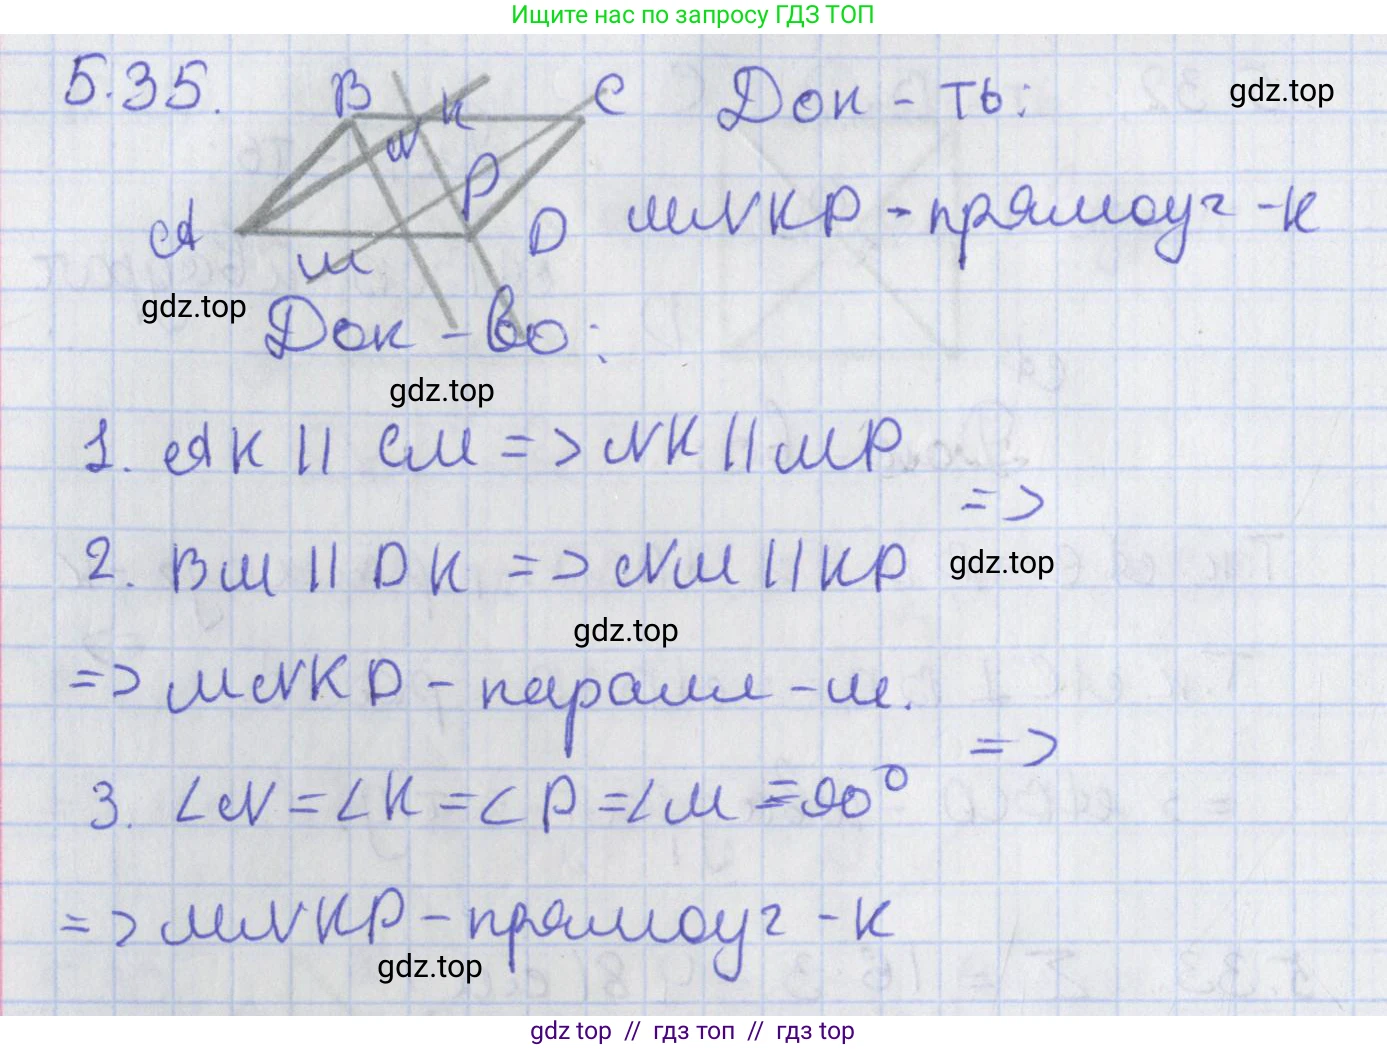 Ищите нас по запросу ГДЗ ТОП
5.35. B K C Док-ть: gdz.top
N P
A D MNKP - прямоуг-к
M
gdz.top
Док-во:
gdz.top
1. AK || CM => NK || MP
=>
2. BM || DK => NM || KP gdz.top
gdz.top
=> MNKP - паралл-м.
=>
3. ∠N = ∠K = ∠P = ∠M = 90°
=> MNKP - прямоуг-к
gdz.top
gdz top // гдз топ // гдз top